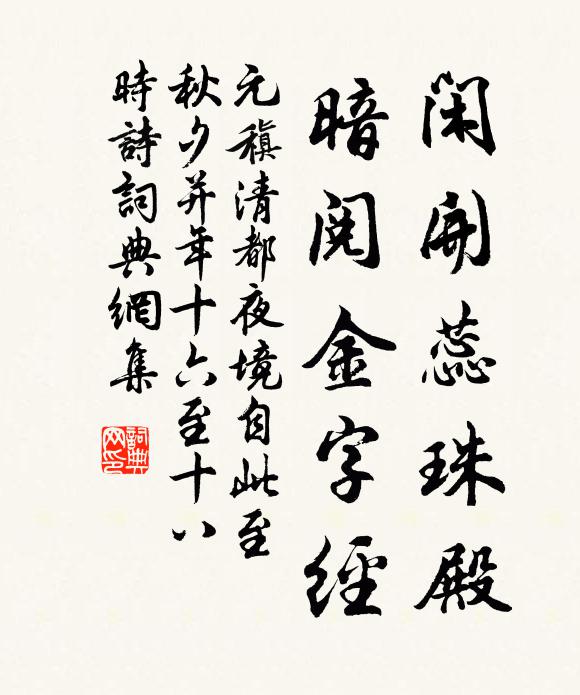 閑開蕊珠殿
暗閱金字經
元稹清都夜境自此至
秋夕并年十六至十八
時詩詞典網集
詞典网印